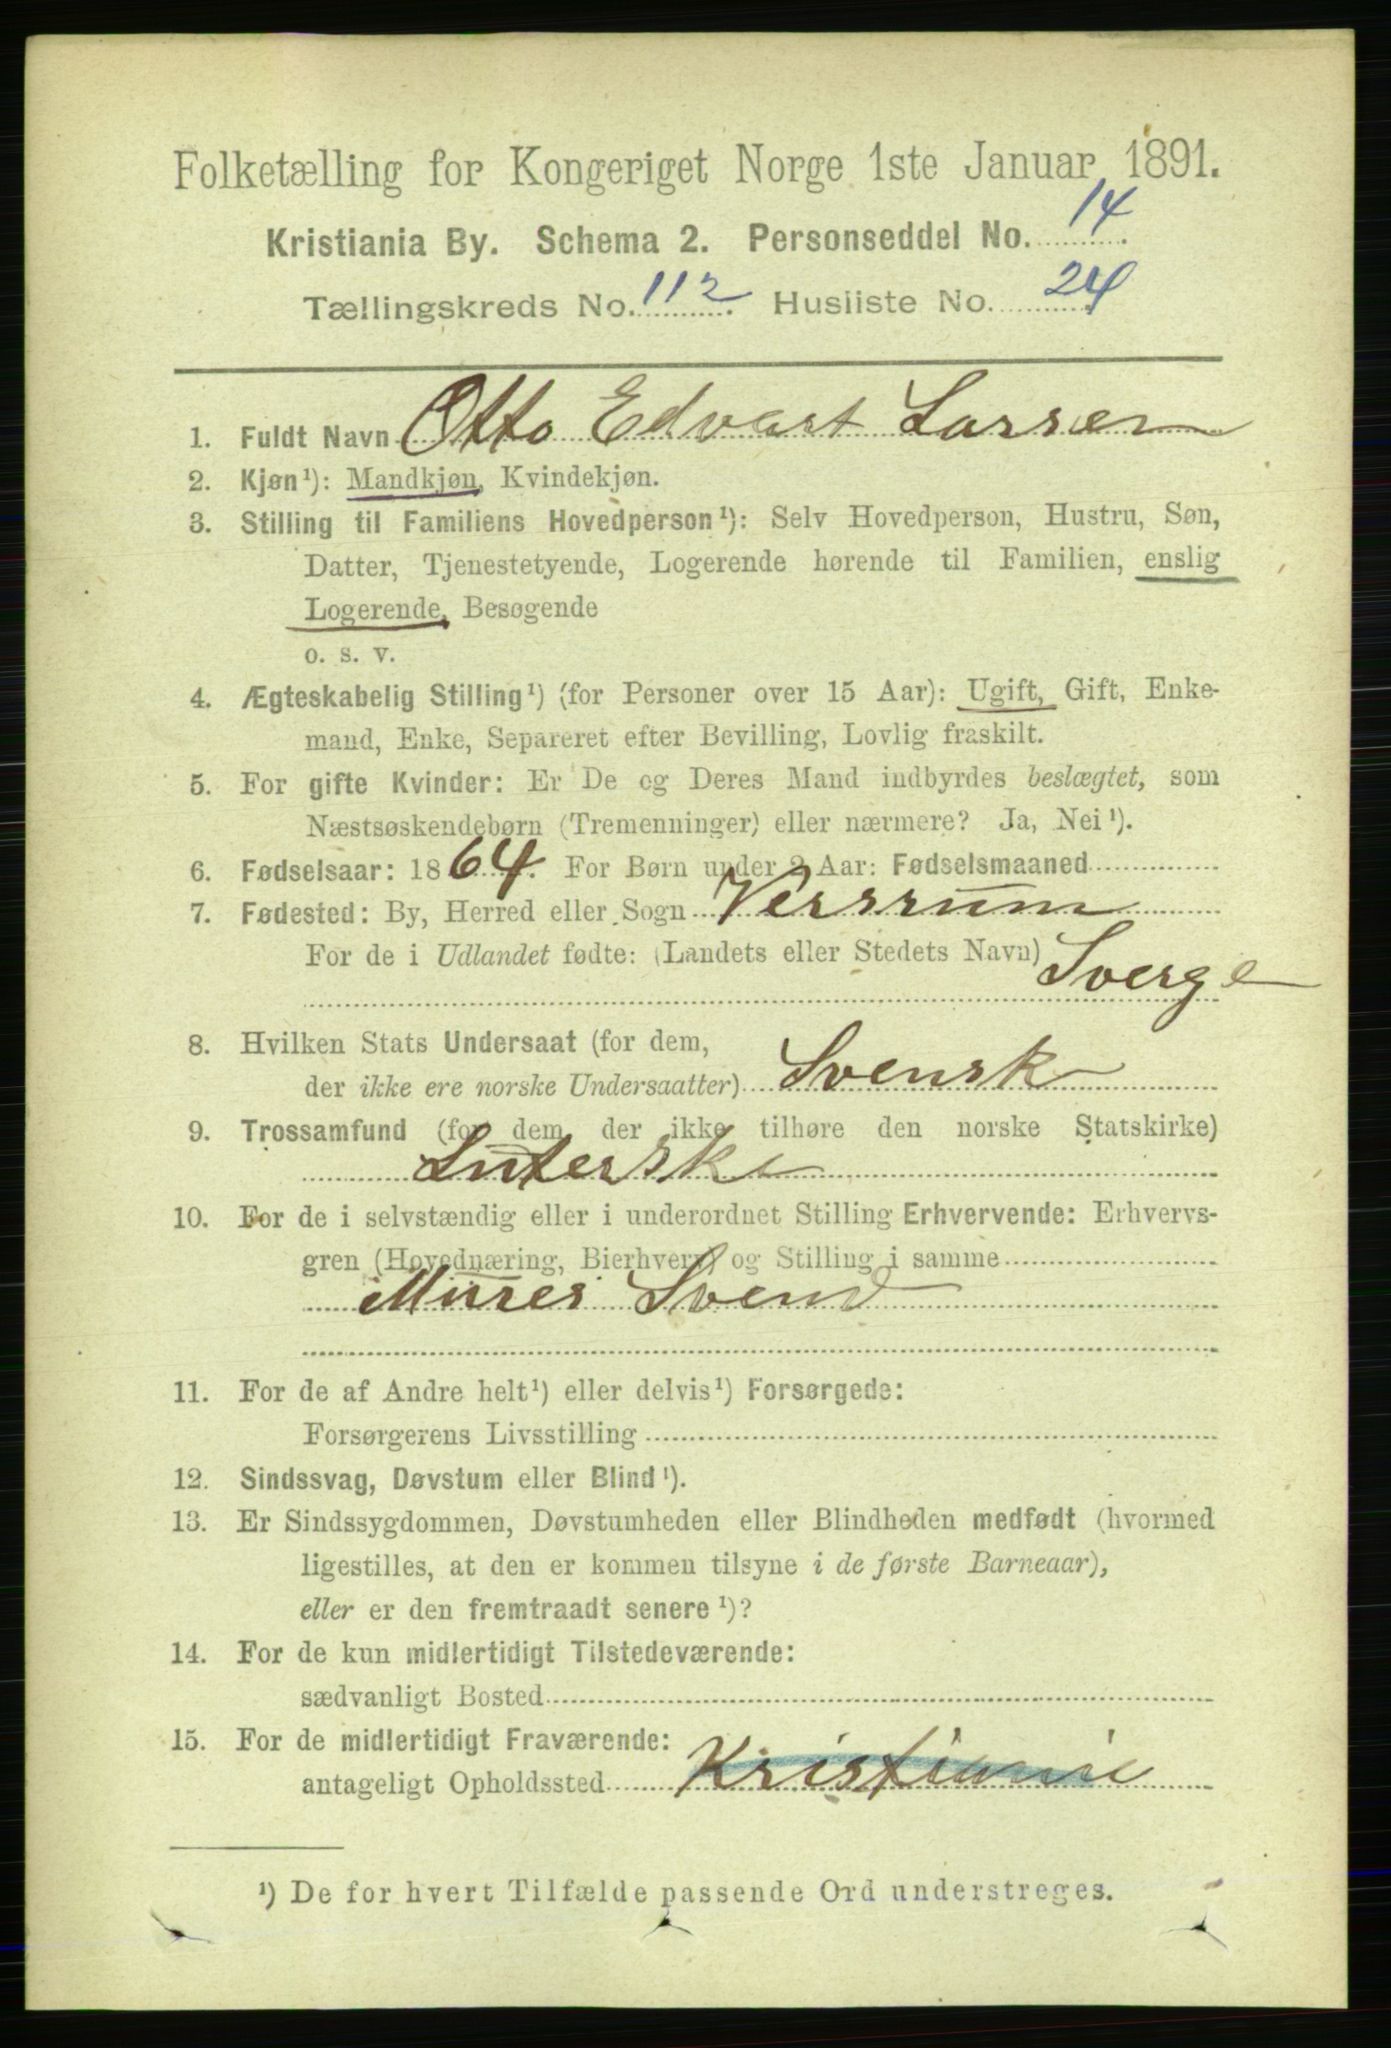 Folketælling for Kongeriget Norge 1ste Januar 1891.
Kristiania By. Schema 2. Personseddel No. 14.
Tællingskreds No. 112. Husliste No. 24
1. Fuldt Navn Otto Edvart Larsen
2. Kjøn¹): Mandkjøn, Kvindekjøn.
3. Stilling til Familiens Hovedperson¹): Selv Hovedperson, Hustru, Søn,
Datter, Tjenestetyende, Logerende hørende til Familien, enslig
Logerende, Besøgende
o. s. v.
4. Ægteskabelig Stilling¹) (for Personer over 15 Aar): Ugift, Gift, Enke-
mand, Enke, Separeret efter Bevilling, Lovlig fraskilt.
5. For gifte Kvinder: Er De og Deres Mand indbyrdes beslægtet, som
Næstsøskendebørn (Tremenninger) eller nærmere? Ja, Nei¹).
6. Fødselsaar: 1864. For Børn under 2 Aar: Fødselsmaaned
7. Fødested: By, Herred eller Sogn Versrum
For de i Udlandet fødte: (Landets eller Stedets Navn) Sverge
8. Hvilken Stats Undersaat (for dem,
der ikke ere norske Undersaatter) Svensk
9. Trossamfund (for dem der ikke tilhøre den norske Statskirke)
Luterske
10. For de i selvstændig eller i underordnet Stilling Erhvervende: Erhvervs-
gren (Hovednæring, Bierhverv) og Stilling i samme
Murer Svend
11. For de af Andre helt¹) eller delvis¹) Forsørgede:
Forsørgerens Livsstilling
12. Sindssvag, Døvstum eller Blind¹).
13. Er Sindssygdommen, Døvstumheden eller Blindheden medfødt (hvormed
ligestilles, at den er kommen tilsyne i de første Barneaar),
eller er den fremtraadt senere¹)?
14. For de kun midlertidigt Tilstedeværende:
sædvanligt Bosted
15. For de midlertidigt Fraværende:
antageligt Opholdssted Kristianie
¹) De for hvert Tilfælde passende Ord understreges.